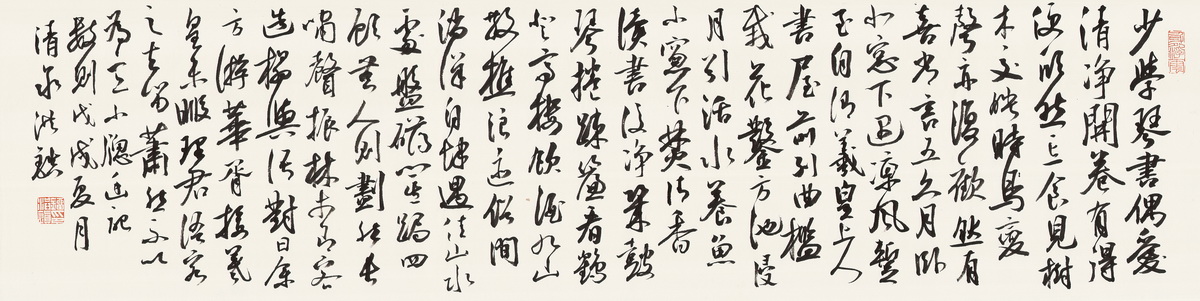 少學琴書偶愛
清淨開卷有得
便欣然忘食見樹
木交映時鳥變
聲亦復歡然有
喜常言五六月臥
北窓下遇涼風暫
至自謂羲皇上人
書屋前列曲檻
栽花鑿方池浸
月引活水養魚
小窓下焚清香
讀書設淨几鼓
琴捲疎簾看鶴
登高樓飲酒九山
散樵浪迹俗間
徜徉自肆遇佳山水
處盤礴箕踞四
顧無人則劃然長
嘯聲振林木有客
造榻與語對曰余
方游華胥接羲
皇未暇理君語客
之去留蕭然不以
為意小窗幽記
數則戊戌夏月
清泉洪